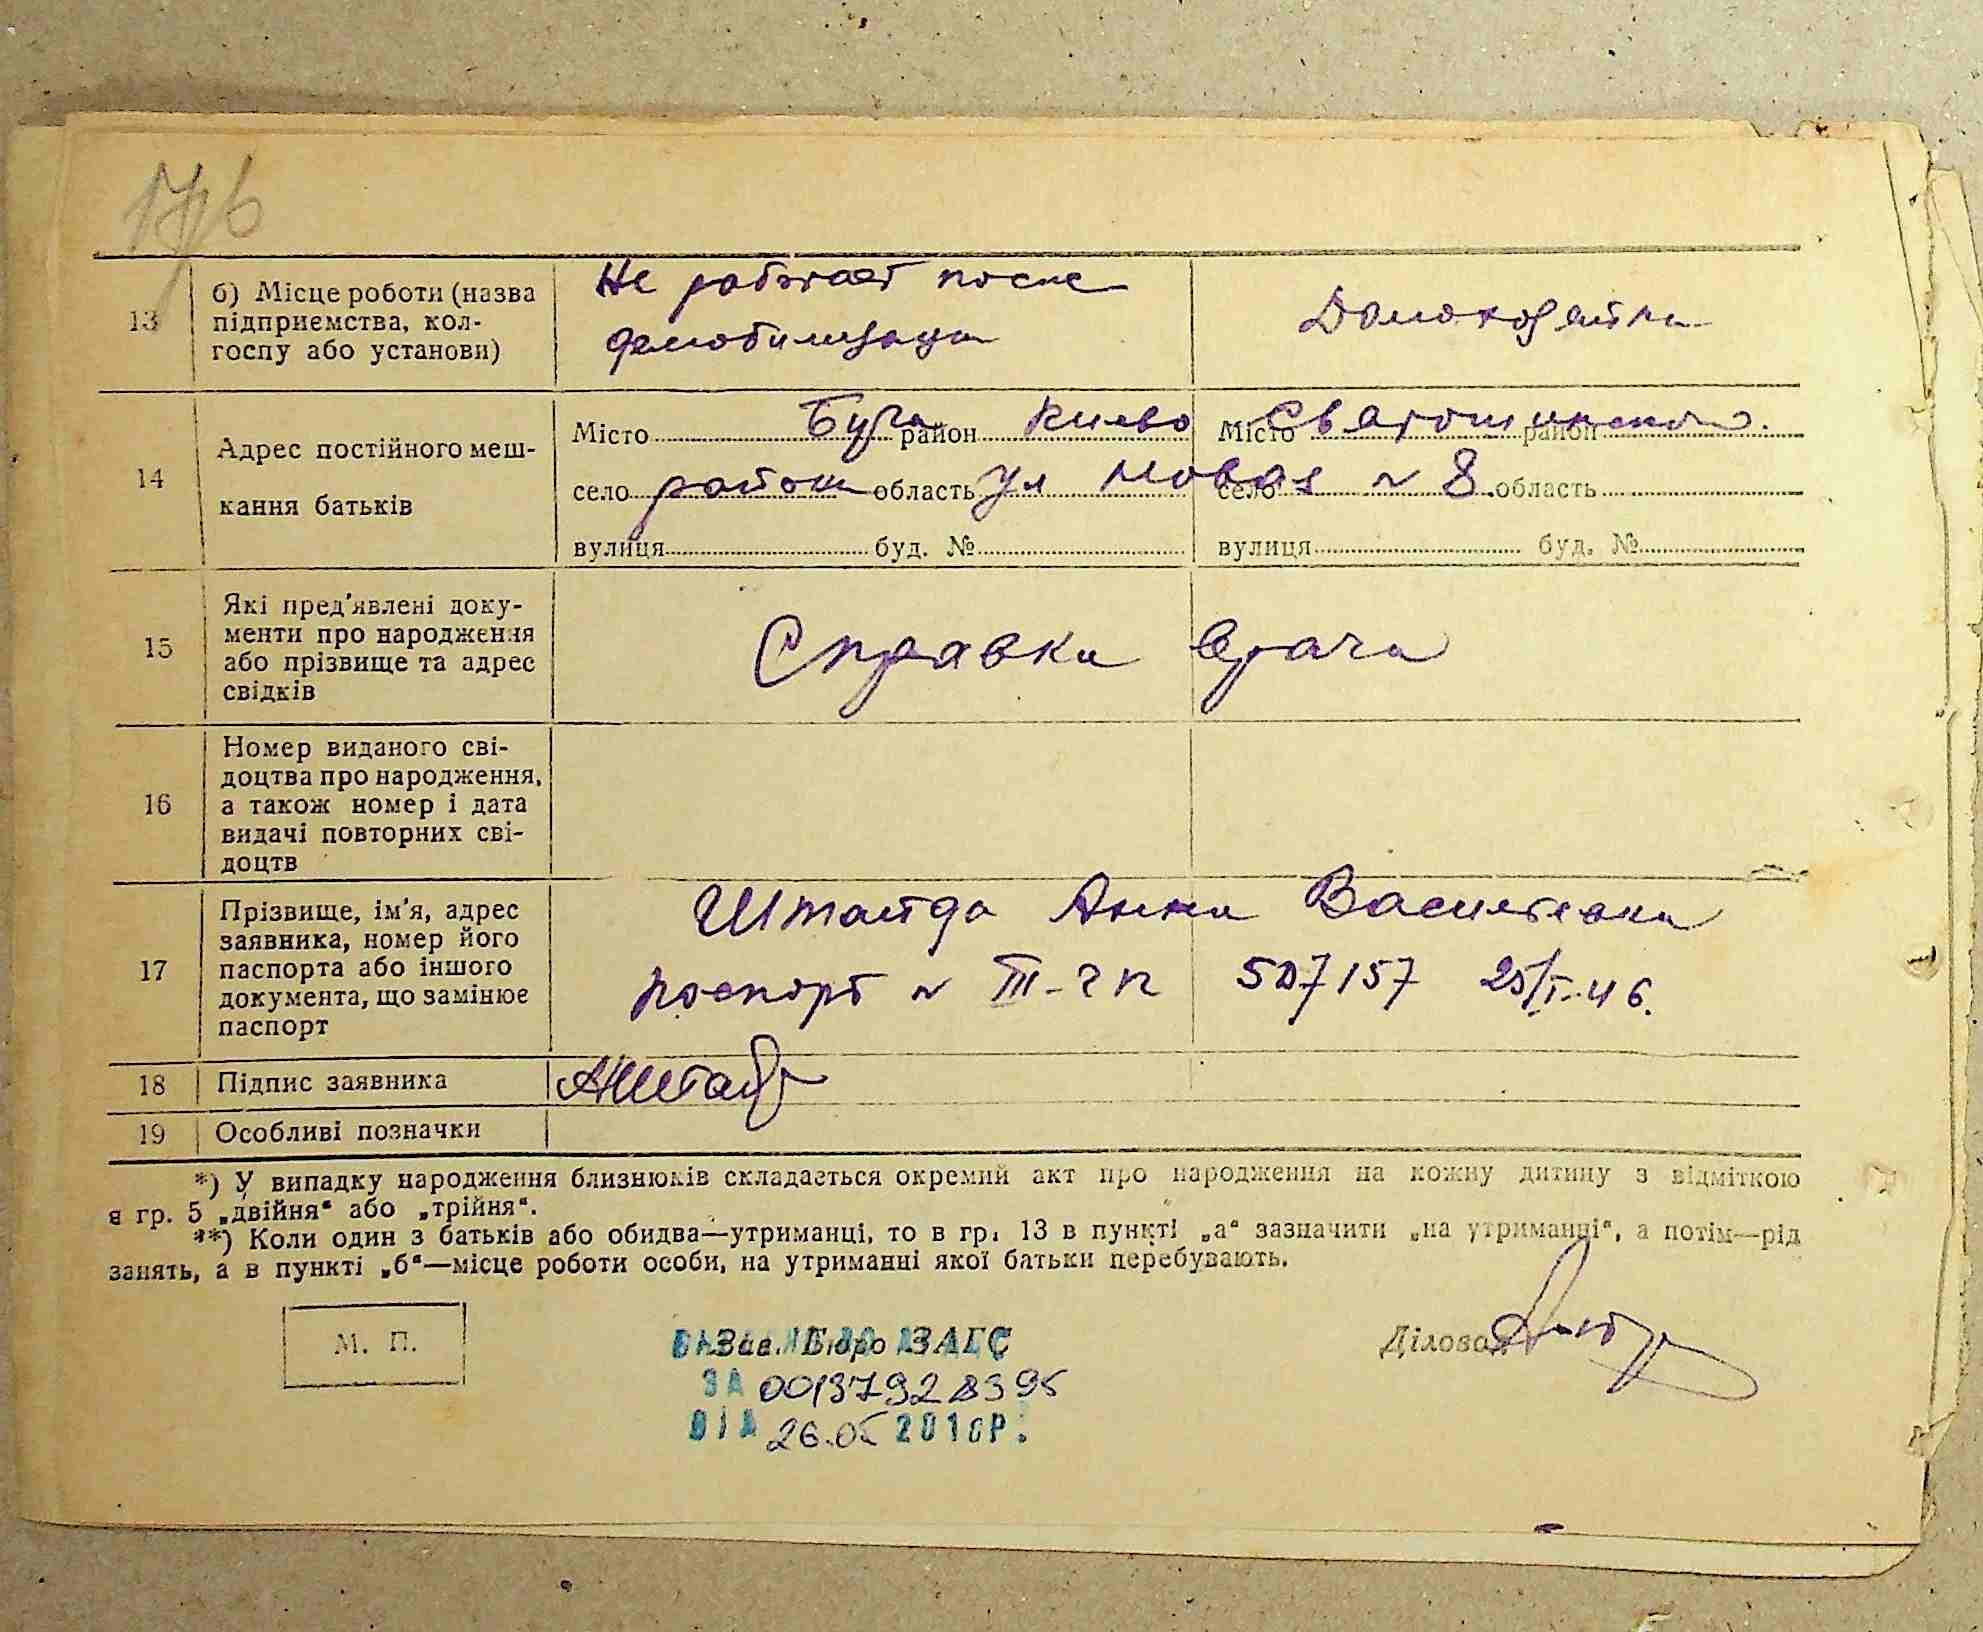 13
б) Місце роботи (назва
підприємства, кол-
госпу або установи)
Не работает после
демобилизации
Домохозяйка
14
Адрес постійного меш-
кання батьків
Місто Буча район Киево Місто Святошинского район
село район область ул Новая село № 8 область
вулиця буд. № вулиця буд. №
15
Які пред'явлені доку-
менти про народження
або прізвище та адрес
свідків
Справка врача
16
Номер виданого сві-
доцтва про народження,
а також номер і дата
видачі повторних сві-
доцтв
17
Прізвище, ім'я, адрес
заявника, номер його
паспорта або іншого
документа, що замінює
паспорт
Анна Васильевна
паспорт № III-ЧП 507157 25/I-46.
18 Підпис заявника
19 Особливі позначки
*) У випадку народження близнюків складається окремий акт про народження на кожну дитину з відміткою
в гр. 5 „двійня“ або „трійня“.
**) Коли один з батьків або обидва—утриманці, то в гр. 13 в пункті „а“ зазначити „на утриманні“, а потім—рід
занять, а в пункті „б“—місце роботи особи, на утриманні якої батьки перебувають.
М. П.
Зав. Бюро ЗАГС
Діловод
ЗА
26.05 2010Р.